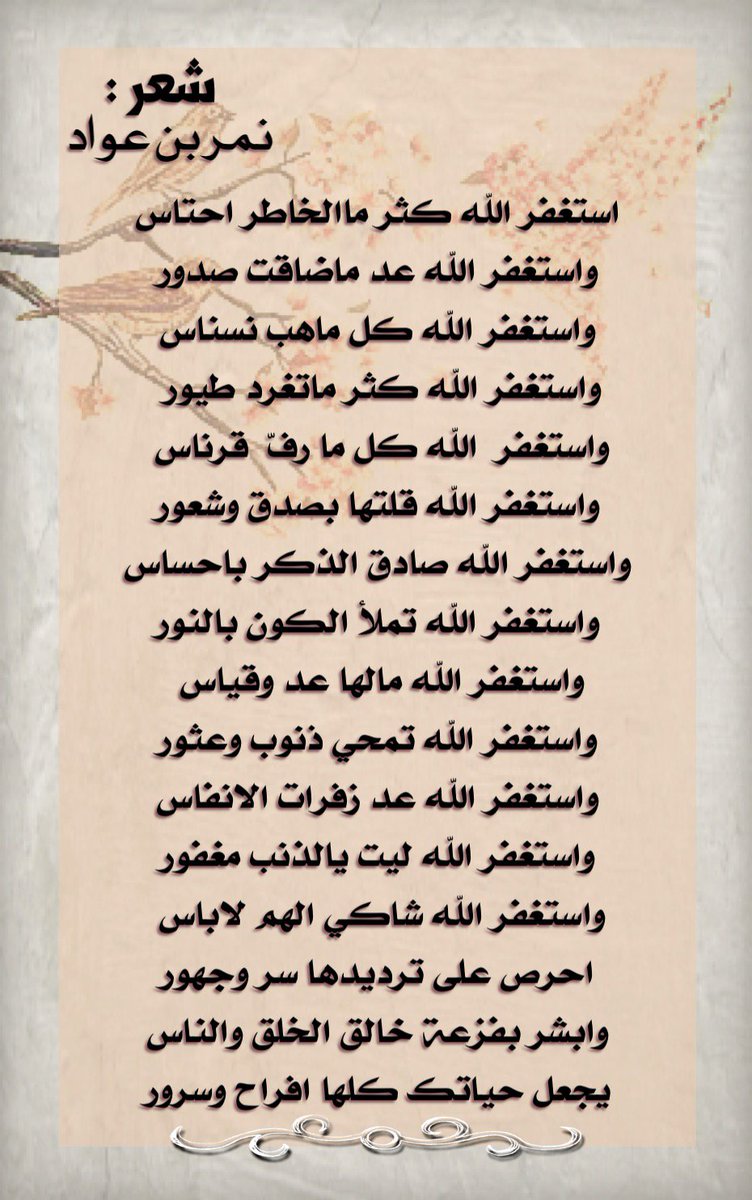 شعر :
نمر بن عواد
استغفر الله كثر ماالخاطر احتاس
واستغفر الله عد ماضاقت صدور
واستغفر الله كل ماهب نسناس
واستغفر الله كثر ماتغرد طيور
واستغفر الله كل ما رفّ قرناس
واستغفر الله قلتها بصدق وشعور
واستغفر الله صادق الذكر باحساس
واستغفر الله تملأ الكون بالنور
واستغفر الله مالها عد وقياس
واستغفر الله تمحي ذنوب وعثور
واستغفر الله عد زفرات الانفاس
واستغفر الله ليت يالذنب مغفور
واستغفر الله شاكي الهم لاباس
احرص على ترديدها سر وجهور
وابشر بفزعة خالق الخلق والناس
يجعل حياتك كلها افراح وسرور